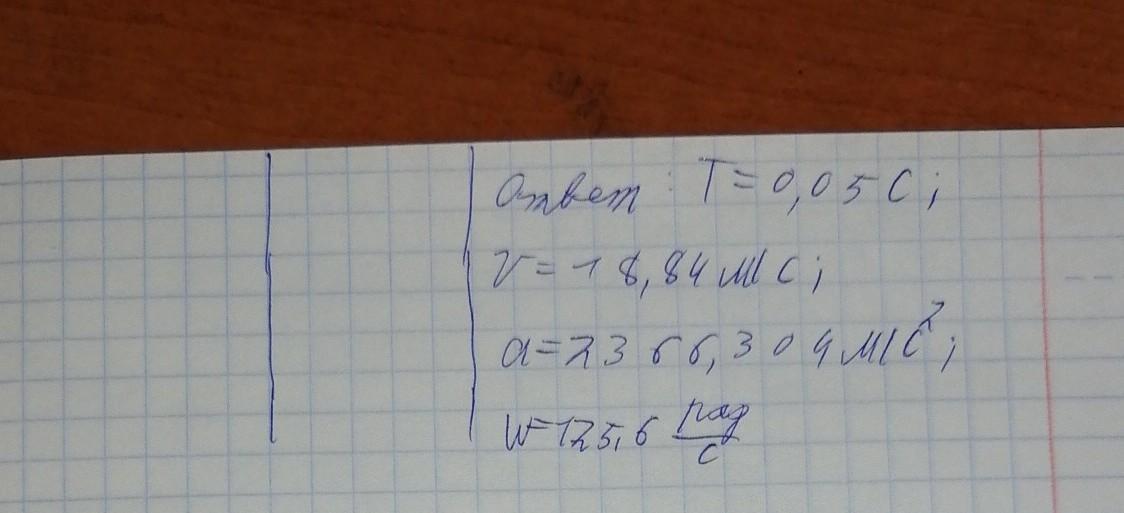 Ответ: T=0,05 с;
v=18,84 м/с;
a=2366,304 м/с²;
w=125,6 рад/с